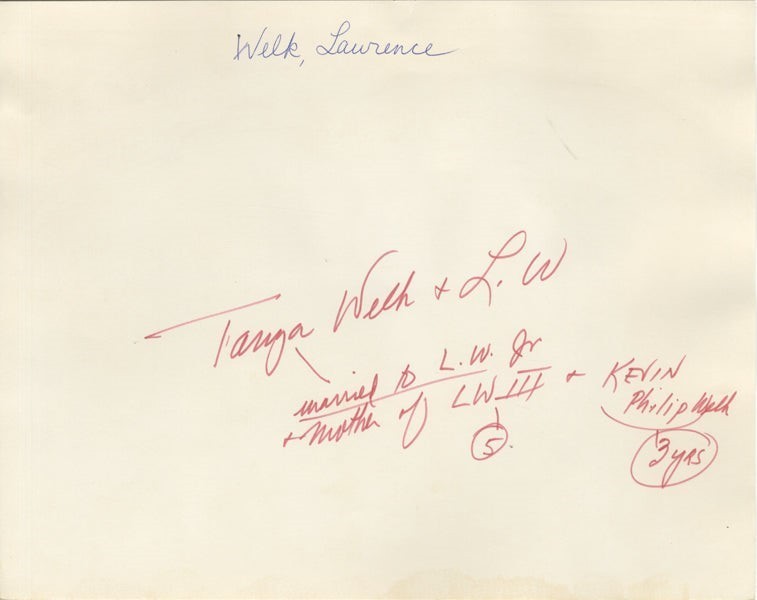 Welk, Lawrence
Tanya Welk + L. W
married to L. W. Jr
+ mother of LW III + KEVIN
Philip Welk
5.
3 yrs